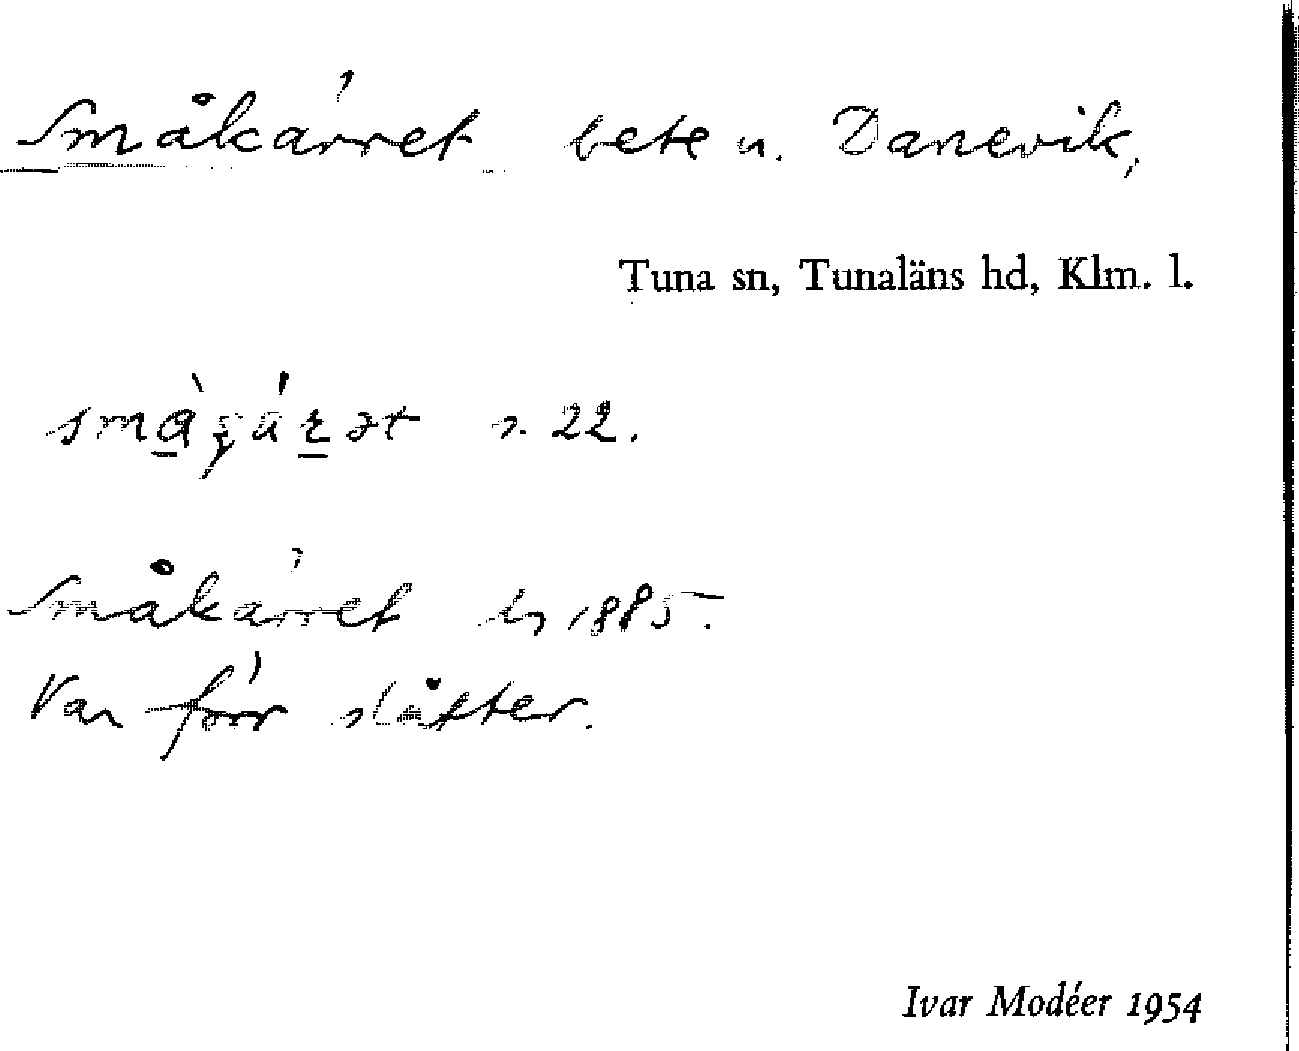 Småkärret bete u. Danevik,
Tuna sn, Tunaläns hd, Klm. l.
s. 22.
Småkärret 1885.
Var förr slåtter.
Ivar Modéer 1954